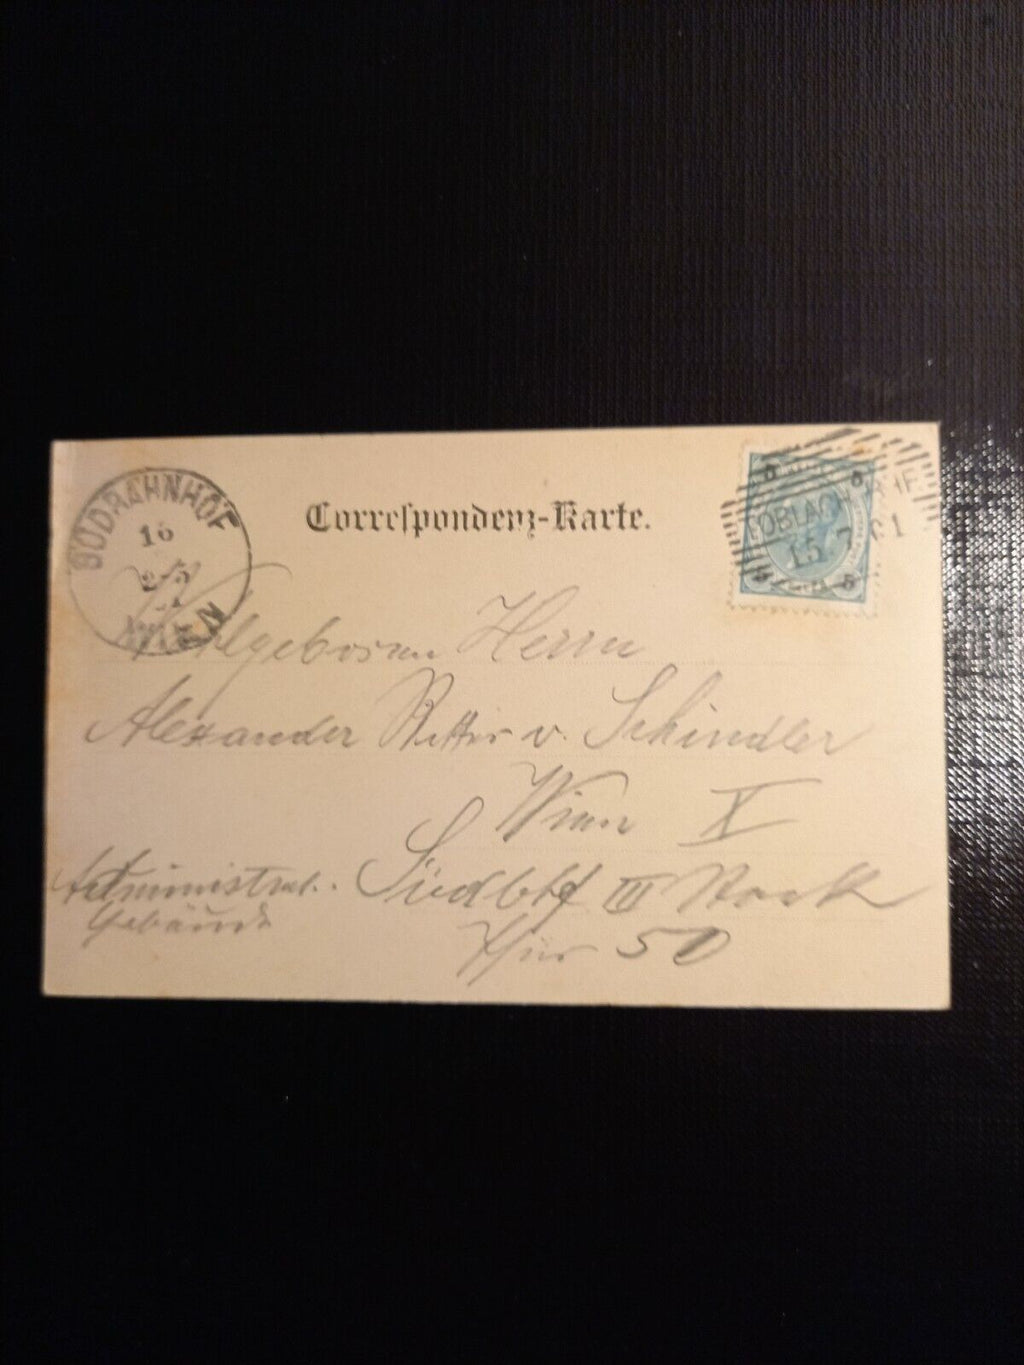 Correspondenz-Karte.
SÜDBAHNHOF
16
WIEN
5 5
TOBLACH
15. 7 01
5 5
Wohlgeboren Herrn
Alexander Ritter v. Schindler
Wien X
Administrat. Südbhf III Stock
Gebäude
Thür 50